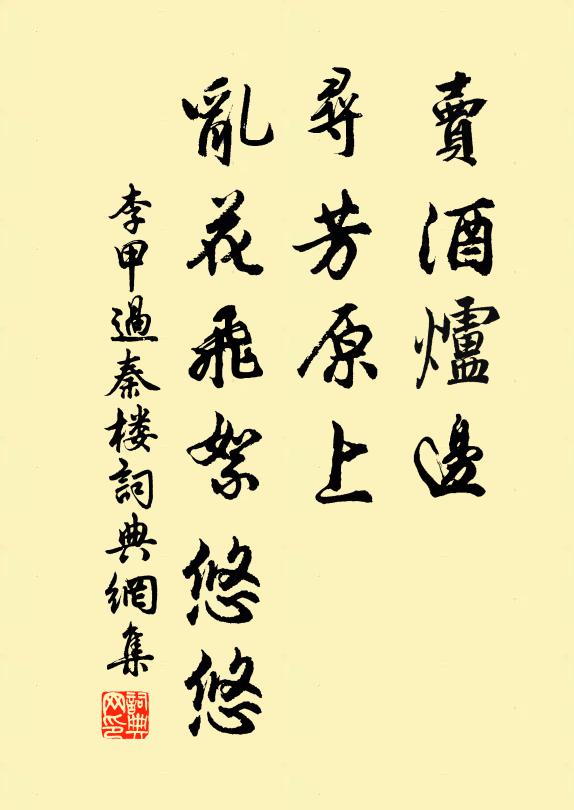 賣酒爐邊
尋芳原上
亂花飛絮悠悠
李甲過秦楼詞典網集
詞典网印